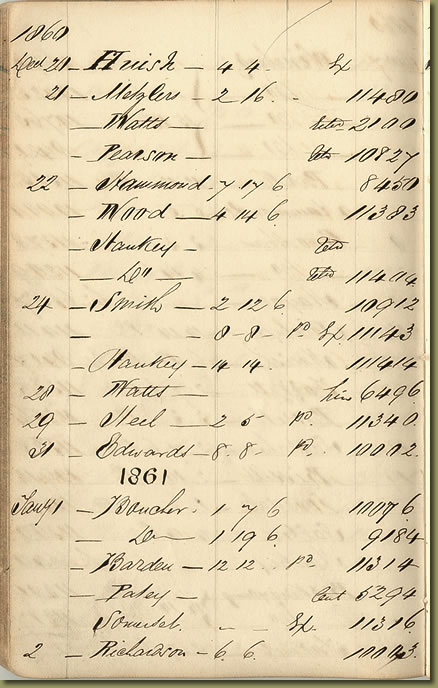 1860
Dec 20 — Huish — 4 4. Ex
21 — Metzlers — 2 16. - 11480
— Watts — 2100
— Pearson — 10827
22 — Hammond — 7 17 6 8450
— Wood — 4 14 6 11383
— Hankey —
— Do 11404
24 — Smith — 2 12 6. 10912
— — 8 - 8 - pd Ex. 11143
— Hankey — 14 14. 11414
28 — Watts — 6496
29 — Neel — 2 5 pd. 11340.
31 — Edwards — 8. 8. pd. 10002.
1861
Jany 1 — Boucher. 1 7 6 10076
— Do — 1 19 6. 9184
— Barden — 12 12. pd. 11314
— Paley — Cent 5294
Somerset. - - Ex. 11316.
2 — Richardson — 6. 6.